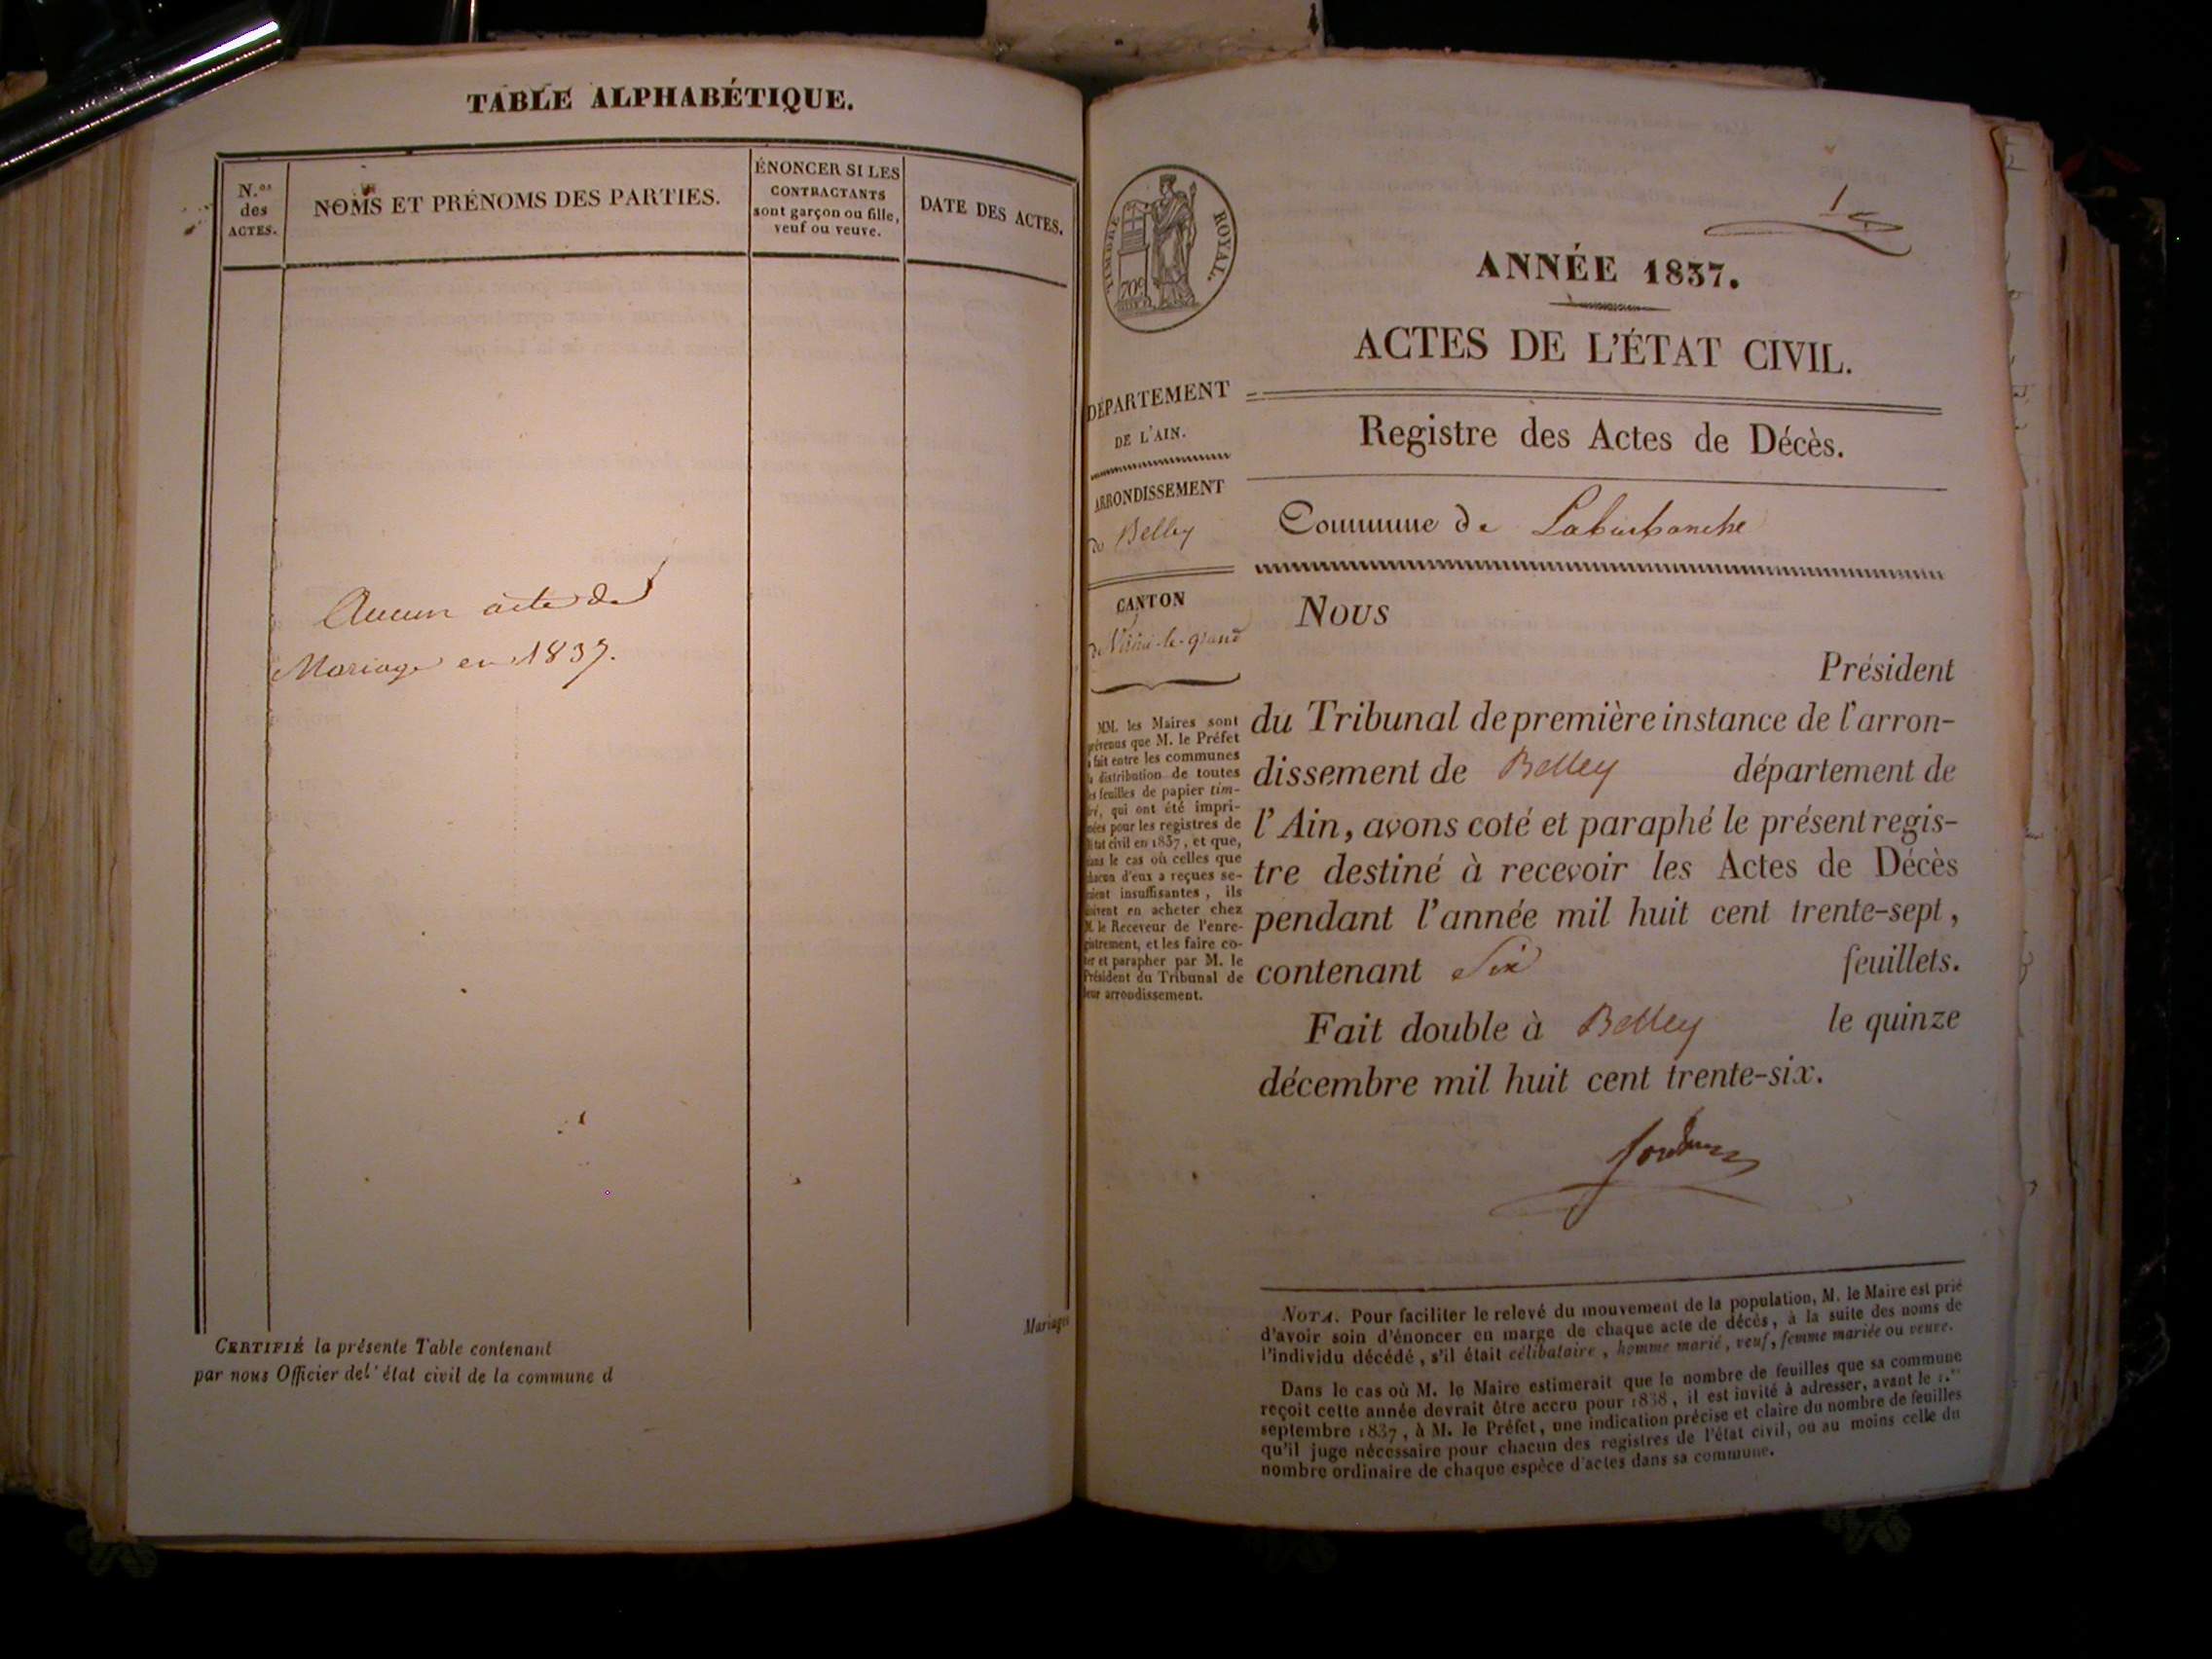 TABLE ALPHABÉTIQUE.
N.os
des
ACTES.
NOMS ET PRÉNOMS DES PARTIES.
ÉNONCER SI LES
CONTRACTANTS
sont garçon ou fille,
veuf ou veuve.
DATE DES ACTES.
Aucun acte de
Mariage en 1837.
Mariages
CERTIFIÉ la présente Table contenant
par nous Officier de l'état civil de la commune d
1
TIMBRE ROYAL.
70c
ANNÉE 1837.
ACTES DE L'ÉTAT CIVIL.
DÉPARTEMENT
DE L'AIN.
ARRONDISSEMENT
de Belley
CANTON
de Virieu-le-grand
MM. les Maires sont
prévenus que M. le Préfet
a fait entre les communes
la distribution de toutes
les feuilles de papier tim-
bré, qui ont été impri-
mées pour les registres de
l'état civil en 1837, et que,
dans le cas où celles que
chacun d'eux a reçues se-
raient insuffisantes, ils
doivent en acheter chez
M. le Receveur de l'enre-
gistrement, et les faire co-
ter et parapher par M. le
Président du Tribunal de
leur arrondissement.
Registre des Actes de Décès.
Commune de Laburbanche
Nous
Président
du Tribunal de première instance de l'arron-
dissement de Belley département de
l'Ain, avons coté et paraphé le présent regis-
tre destiné à recevoir les Actes de Décès
pendant l'année mil huit cent trente-sept,
contenant Six feuillets.
Fait double à Belley le quinze
décembre mil huit cent trente-six.
NOTA. Pour faciliter le relevé du mouvement de la population, M. le Maire est prié
d'avoir soin d'énoncer en marge de chaque acte de décès, à la suite des noms de
l'individu décédé, s'il était célibataire, homme marié, veuf, femme mariée ou veuve.
Dans le cas où M. le Maire estimerait que le nombre de feuilles que sa commune
reçoit cette année devrait être accru pour 1838, il est invité à adresser, avant le 1.er
septembre 1837, à M. le Préfet, une indication précise et claire du nombre de feuilles
qu'il juge nécessaire pour chacun des registres de l'état civil, ou au moins celle du
nombre ordinaire de chaque espèce d'actes dans sa commune.